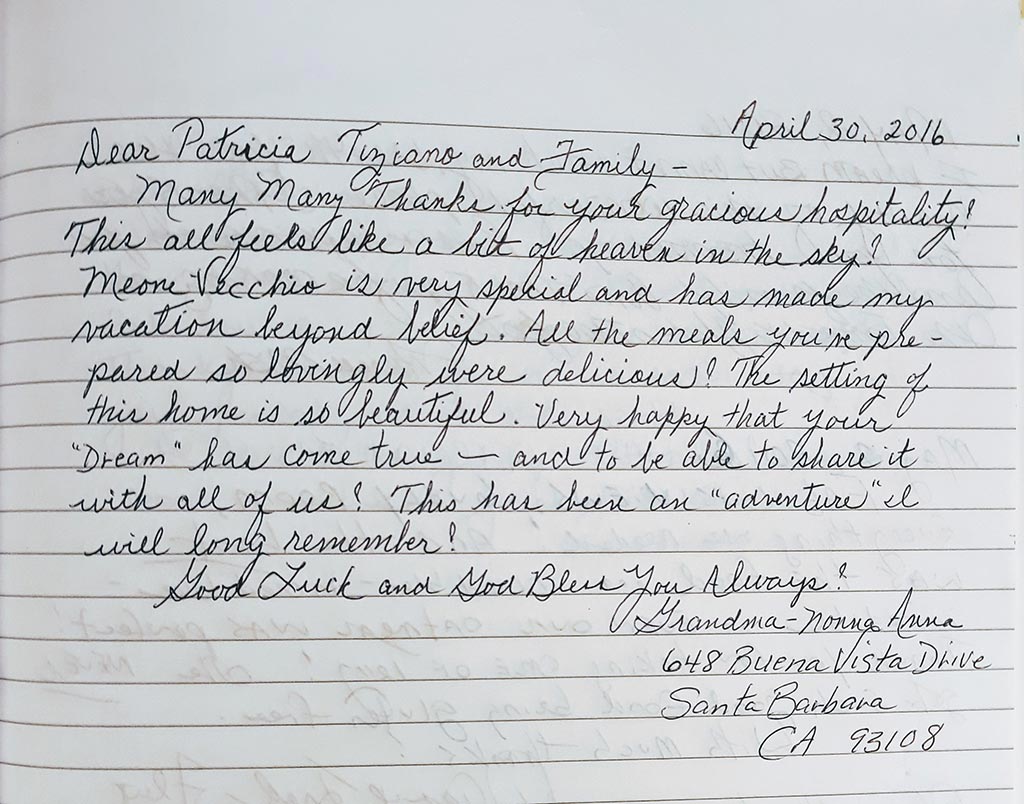 April 30, 2016
Dear Patricia Tiziano and Family -
Many Many Thanks for your gracious hospitality!
This all feels like a bit of heaven in the sky!
Meone Vecchio is very special and has made my
vacation beyond belief. All the meals you've pre-
pared so lovingly were delicious! The setting of
this home is so beautiful. Very happy that your
"Dream" has come true — and to be able to share it
with all of us! This has been an "adventure" I
will long remember!
Good Luck and God Bless You Always!
Grandma-Nonna Anna
648 Buena Vista Drive
Santa Barbara
CA 93108